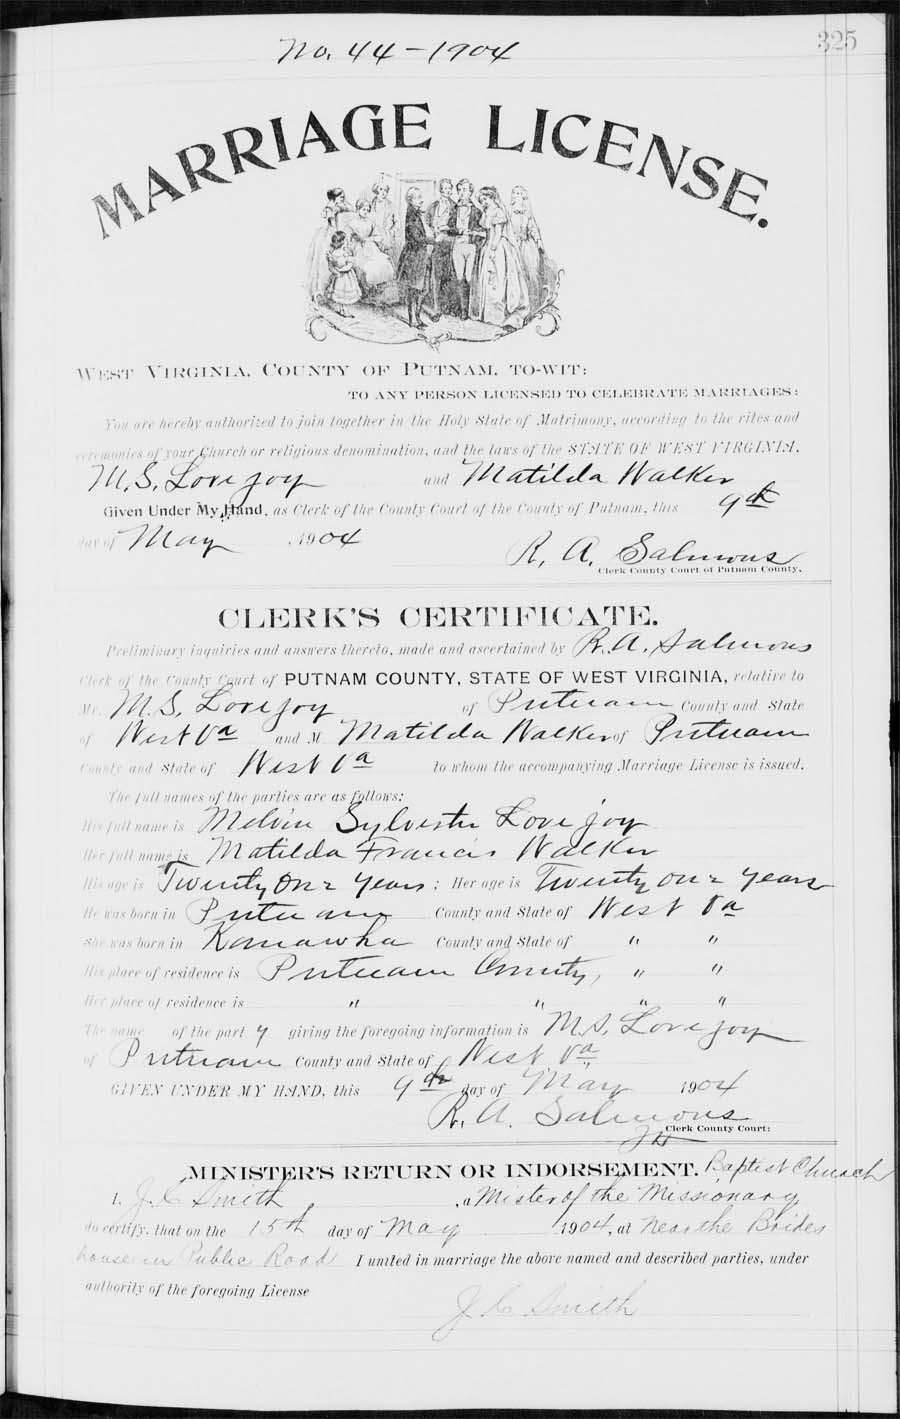 325
No. 44-1904
MARRIAGE LICENSE.
WEST VIRGINIA, COUNTY OF PUTNAM, TO-WIT:
TO ANY PERSON LICENSED TO CELEBRATE MARRIAGES:
You are hereby authorized to join together in the Holy State of Matrimony, according to the rites and
ceremonies of your Church or religious denomination, and the laws of the STATE OF WEST VIRGINIA,
M. S. Lovejoy and Matilda Walker
Given Under My Hand, as Clerk of the County Court of the County of Putnam, this 9th
day of May, 1904
R. A. Salmons
Clerk County Court of Putnam County.
CLERK'S CERTIFICATE.
Preliminary inquiries and answers thereto, made and ascertained by R. A. Salmons
Clerk of the County Court of PUTNAM COUNTY, STATE OF WEST VIRGINIA, relative to
Mr. M. S. Lovejoy of Putnam County and State
of West Va and M Matilda Walker of Putnam
County and State of West Va to whom the accompanying Marriage License is issued.
The full names of the parties are as follows:
His full name is Melvin Sylvester Lovejoy
Her full name is Matilda Francis Walker
His age is Twenty One Years; Her age is Twenty One Years
He was born in Putnam County and State of West Va
She was born in Kanawha County and State of " "
His place of residence is Putnam County, " "
Her place of residence is " " " "
The name of the party giving the foregoing information is M. S. Lovejoy
of Putnam County and State of West Va.
GIVEN UNDER MY HAND, this 9th day of May 1904
R. A. Salmons
Clerk County Court:
MINISTER'S RETURN OR INDORSEMENT. Baptist Church
I, J. C. Smith, a Mister of the Missionary
do certify, that on the 15th day of May 1904, at Near the Brides
house in Public Road I united in marriage the above named and described parties, under
authority of the foregoing License
J. C. Smith